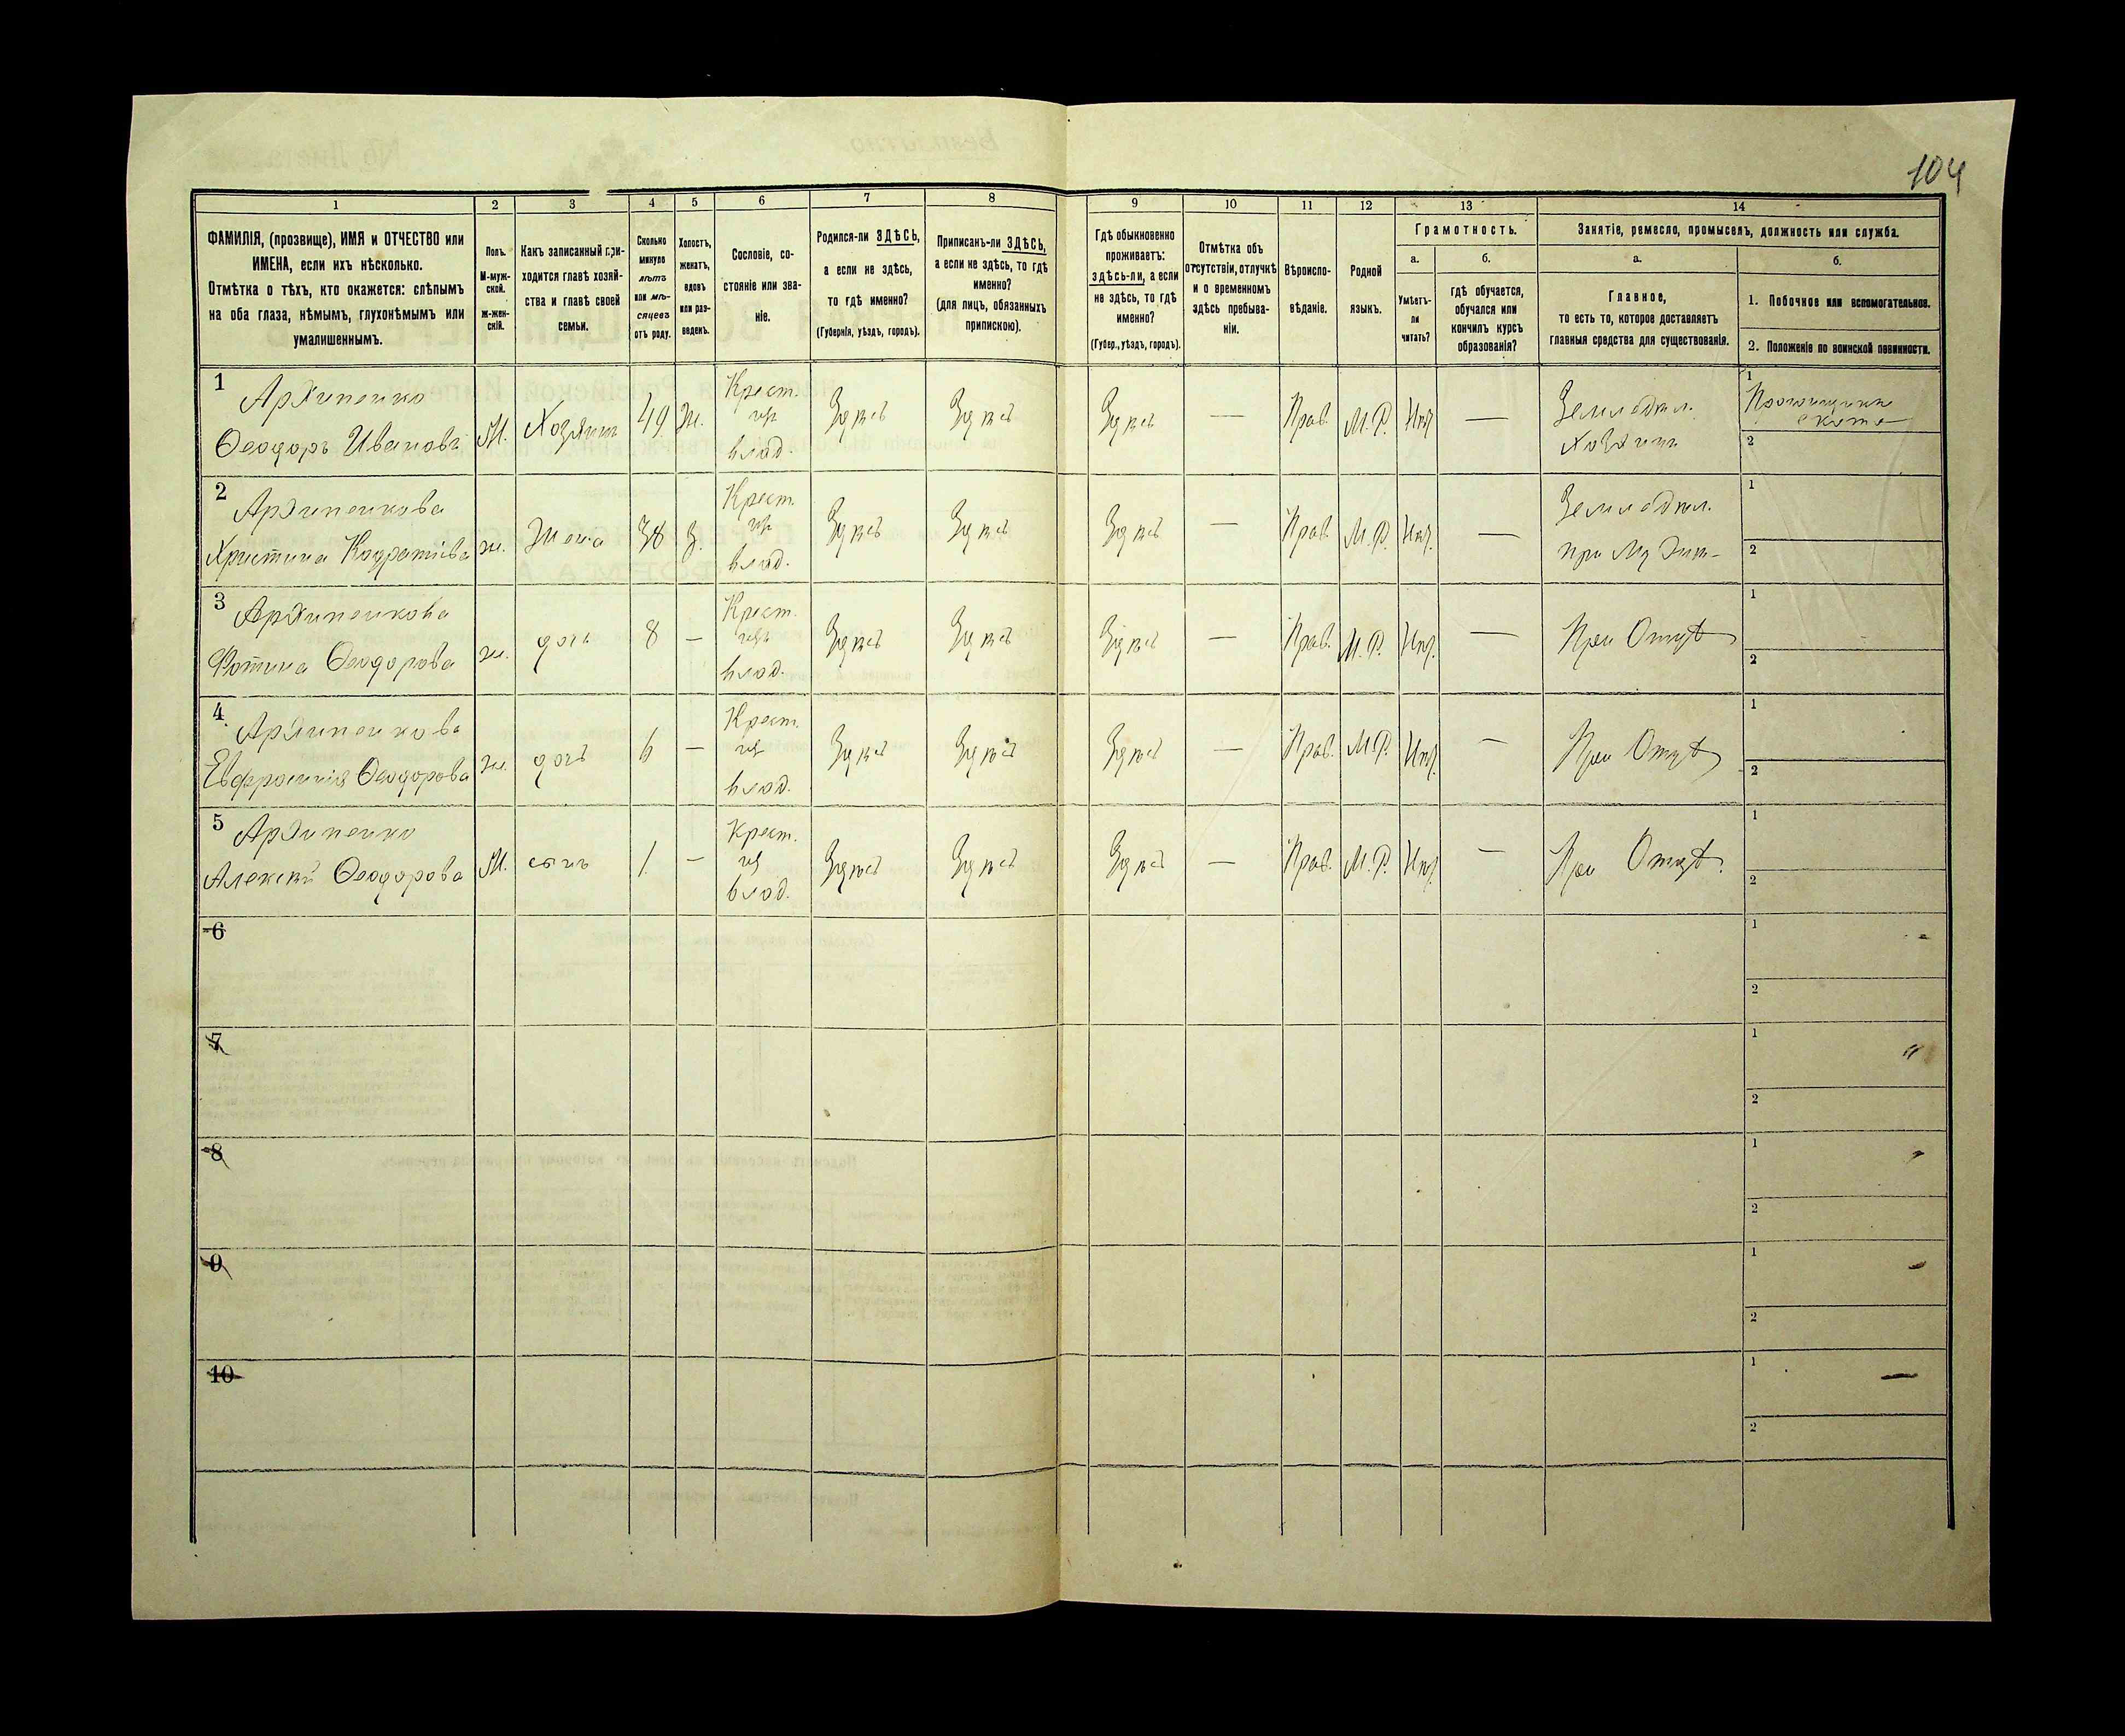 104
1 2 3 4 5 6 7 8 9 10 11 12 13 14
ФАМИЛІЯ, (прозвище), ИМЯ и ОТЧЕСТВО или
ИМЕНА, если ихъ нѣсколько.
Отмѣтка о тѣхъ, кто окажется: слѣпымъ
на оба глаза, нѣмымъ, глухонѣмымъ или
умалишеннымъ.
Полъ.
М-муж-
ской.
Ж-жен-
скій.
Какъ записанный при-
ходится главѣ хозяй-
ства и главѣ своей
семьи.
Сколько
минуло
лѣтъ
или мѣ-
сяцевъ
отъ роду.
Холостъ,
женатъ,
вдовъ
или раз-
веденъ.
Сословіе, со-
стояніе или зва-
ніе.
Родился-ли ЗДѢСЬ,
а если не здѣсь,
то гдѣ именно?
(Губернія, уѣздъ, городъ).
Приписанъ-ли ЗДѢСЬ,
а если не здѣсь, то гдѣ
именно?
(для лицъ, обязанныхъ
припискою).
Гдѣ обыкновенно
проживаетъ:
здѣсь-ли, а если
не здѣсь, то гдѣ
именно?
(Губер., уѣздъ, городъ).
Отмѣтка объ
отсутствіи, отлучкѣ
и о временномъ
здѣсь пребыва-
ніи.
Вѣроиспо-
вѣданіе.
Родной
языкъ.
Грамотность.
а.
Умѣетъ-
ли
читать?
б.
гдѣ обучается,
обучался или
кончилъ курсъ
образованія?
Занятіе, ремесло, промыселъ, должность или служба.
а.
Главное,
то есть то, которое доставляетъ
главныя средства для существованія.
б.
1. Побочное или вспомогательное.
2. Положеніе по воинской повинности.
1
Архипенко
Ѳеодоръ Ивановъ
М.
Хозяинъ
49
Ж.
Крест.
влад.
Здѣсь
Здѣсь
Здѣсь
—
Прав.
М. Р.
—
Земледѣл.
Хозяинъ
1
скота
2
2
Архипенкова
Христина Кодратіева
ж.
жена
38
З.
Крест.
влад.
Здѣсь
Здѣсь
Здѣсь
—
Прав.
М. Р.
—
Земледѣл.
при Мужѣ
1
2
3
Архипенкова
Фотина Ѳеодорова
ж.
дочь
8
—
Крест.
влад.
Здѣсь
Здѣсь
Здѣсь
—
Прав.
М. Р.
—
При Отцѣ
1
2
4
Архипенкова
Евфросинія Ѳеодорова
ж.
дочь
6
—
Крест.
влад.
Здѣсь
Здѣсь
Здѣсь
—
Прав.
М. Р.
—
При Отцѣ
1
2
5
Архипенко
Алексѣй Ѳеодорова
М.
сынъ
1
—
Крест.
влад.
Здѣсь
Здѣсь
Здѣсь
—
Прав.
М. Р.
—
При Отцѣ
1
2
6
1
2
7
1
2
8
1
2
9
1
2
10
1
2